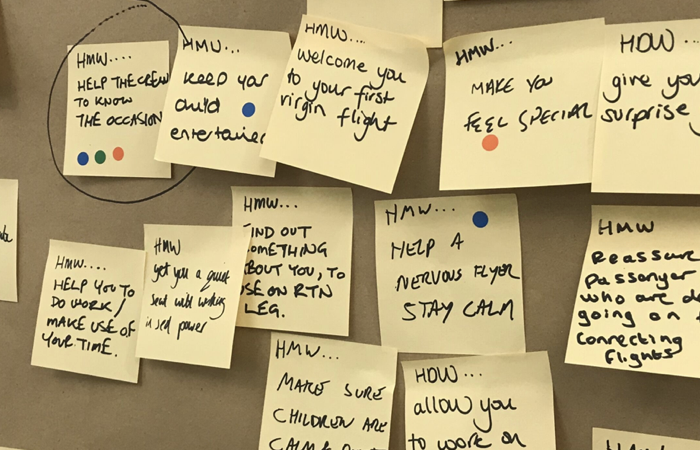 HMW....
HELP THE CREW
TO KNOW
THE OCCASION
HMW...
KEEP YOUR
CHILD
entertained
HMW...
Welcome you
to your first
virgin flight
HMW...
MAKE YOU
FEEL SPECIAL
HOW...
give you
surprise
HMW....
HELP YOU TO
DO WORK/
MAKE USE OF
YOUR TIME.
HMW
get you a quiet
seat with working
in seat power
HMW...
FIND OUT
SOMETHING
ABOUT YOU, TO
USE ON RTN
LEG.
HMW...
HELP A
NERVOUS FLYER
STAY CALM
HMW
Reassure
passenger
who are
going on
Connecting
flights
HMW...
MAKE SURE
CHILDREN ARE
CALM
HOW...
allow you
to work on